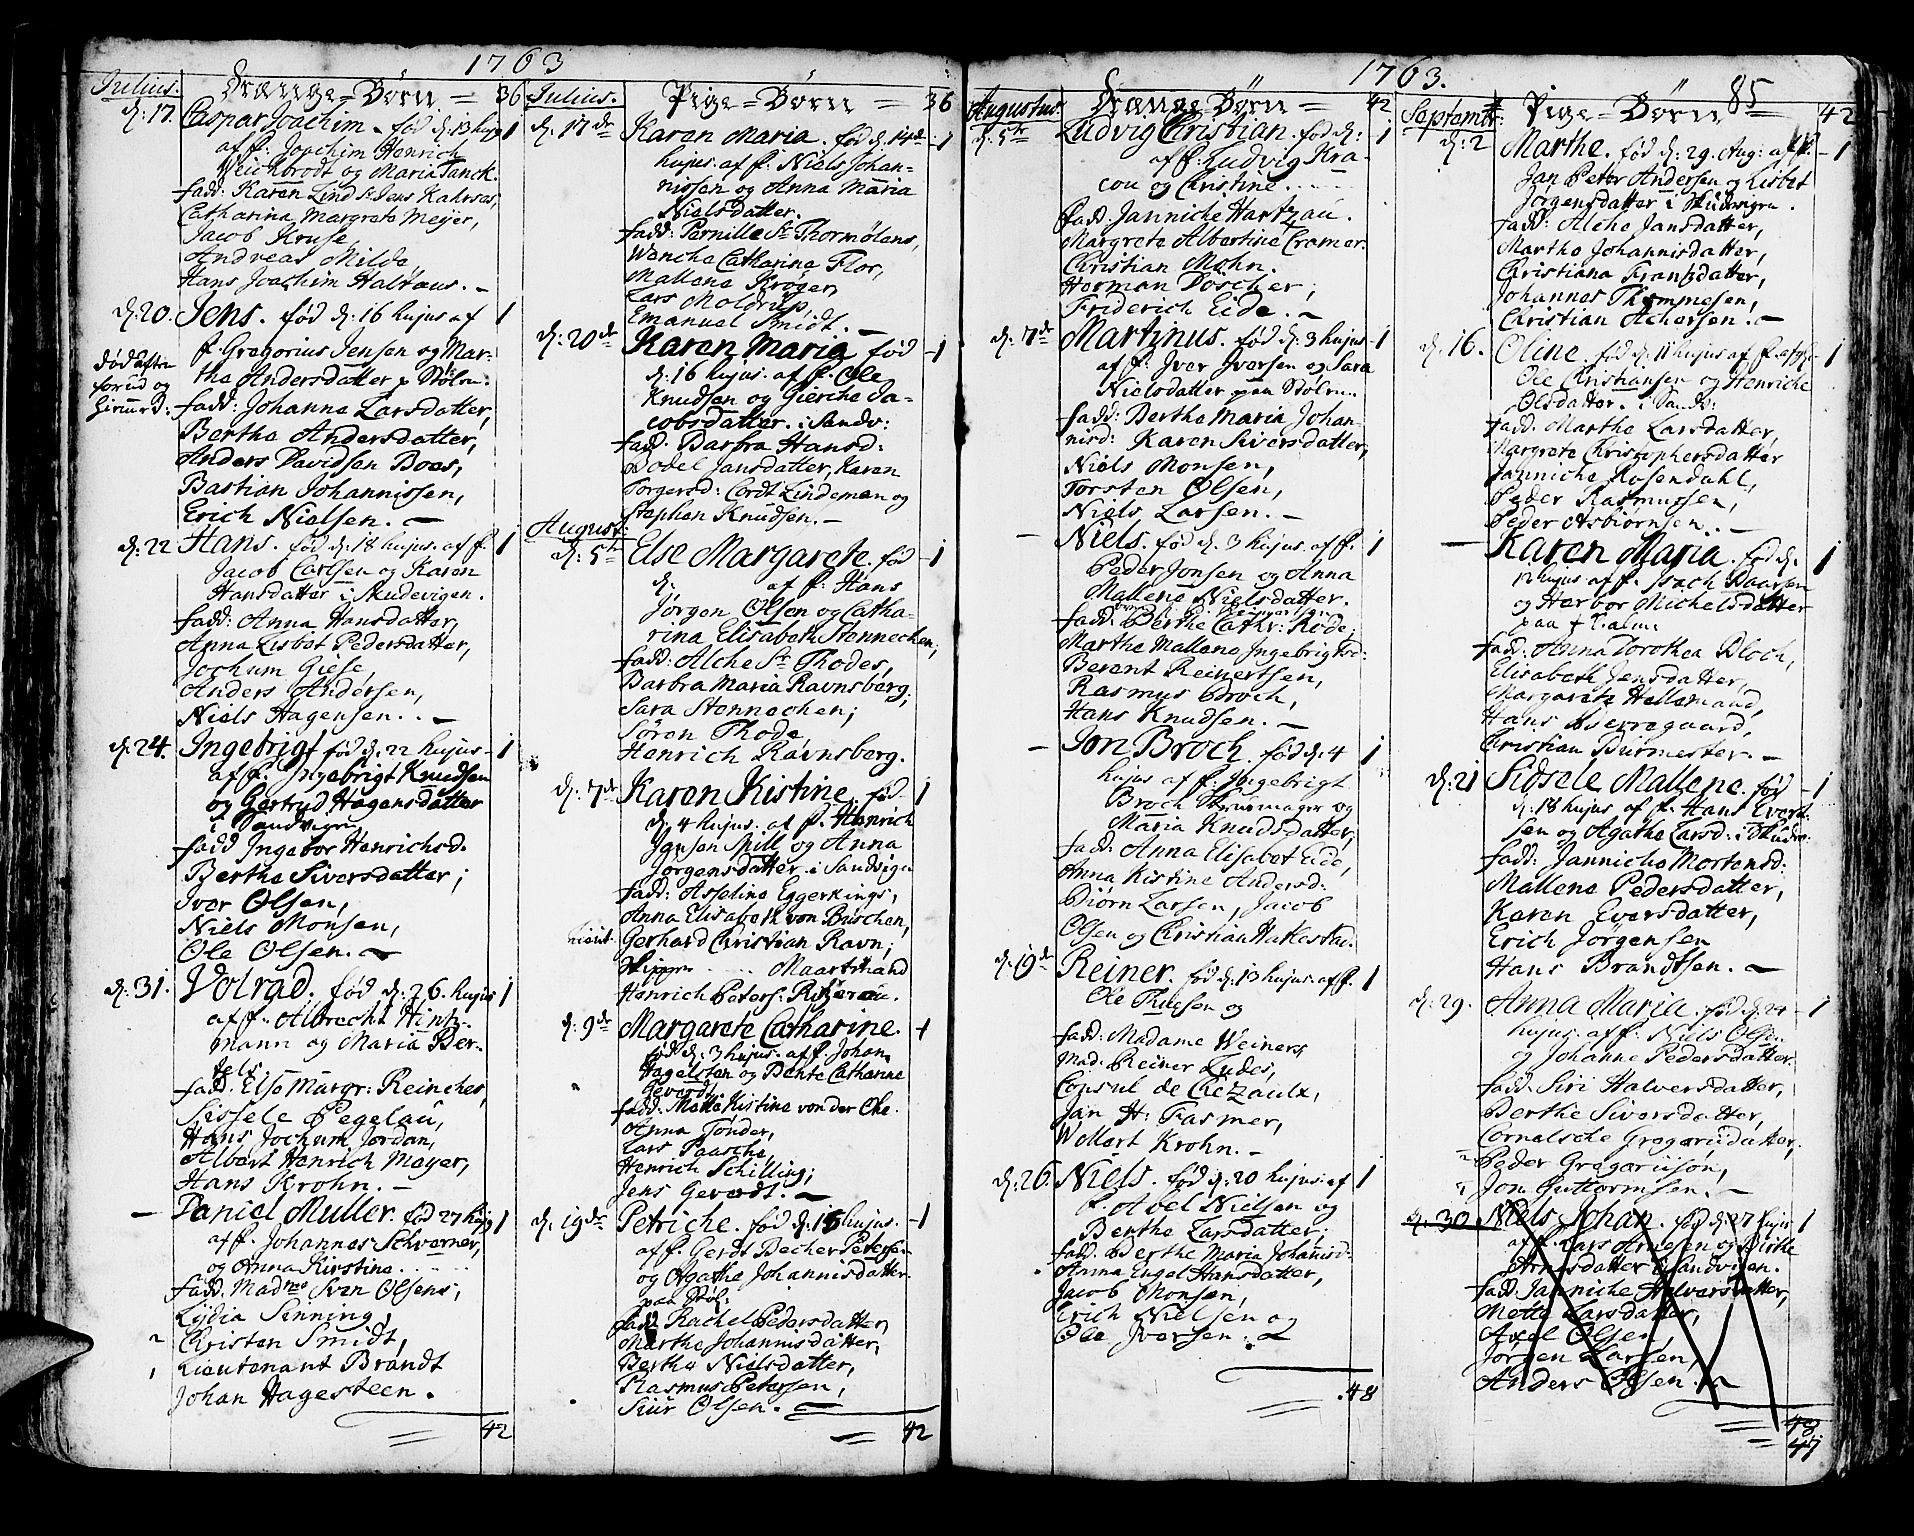 1763
Julius. Drænge-Börn = 36
d: 17. Caspar Joachim. fød d: 13 hujg 1
af f. Joachim Henrich
Weichbrodt og Maria Tanck.
fadd: Karen Lind Sr Jens Kahrsøs,
Catharina Margrete Meijer,
Jacob Kruse,
Andreas Milde
Hans Joachim Halfaus. –
d: 20. Jens. fød d: 16 hujus af 1
f. Gregorius Jensen og Mar-
the Andersdatter p Stølen.
død aften
forud og
hiemed:
fadd: Johanna Larsdatter,
Berthe Andersdatter,
Anders Davidsen Boes,
Bastian Johannissen,
Erich Nielsen. –
d: 22 Hans. fød d: 18 hujus. af f. 1
Jacob Carlsen og Karen
Hansdatter i Skudevigen.
fadd: Anna Hansdatter,
Anna Lisbet Pedersdatter,
Jochum Giese,
Anders Andersen,
Niels Hagensen. . –
d: 24. Ingebrigt fød d: 22 hujus 1
af f. Ingebrigt Knudsen
og Gertryd Hagensdatter
i Sandvigen
fadd Ingebor Henrichsd.
Berthe Siversdatter;
Iver Olsen,
Niels Monsen,
Ole Olsen. –
d: 31. Volrad. fød d: 26. hujus 1
af f. Albrecht Hintz-
mann og Maria Ber-
tels.
fadd. Else Margr: Reinches,
Sissele Pegelau,
Hans Jochum Jordan,
Albert Henrich Mayer,
Hans Krohn. –
– Daniel Muller. fød 27 hujg 1
af f. Johannes Schverner,
og Anna Kirstine . . . . .
fadd. Madme Sven Olsens,
Lydia Sinning,
Christen Smidt,
Lieutenant Brandt
Johan Hagesteen.
42
Julius. Pige-Börn = 36
d: 17de Karen Maria. fød d. 14de 1
hujus. af f. Niels Johan-
nissen og Anna Maria
Nielsdatter.
fadd: Pernille Sr Thormølens,
Wenche Catharine Flor,
Mallene Krøger,
Lars Moldrup,
Emanuel Smidt. –
d: 20de Karen Maria fød 1
d: 16 hujus. af f. Ole
Knudsen og Gierche Ja-
cobsdatter. i Sandv:
fadd: Barbra Hansd:
Bodel Jansdatter, Karen
Torgersd: Cordt Lindeman og
Stephen Knudsen. –
August:
d: 5te Else Margarete. fød 1
d: af f. Hans
Jørgen Olsen og Catha-
rina Elisabeth Stennechen;
fadd: Alche Sr Thodes,
Barbra Maria Ravnsberg,
Sara Stennechen;
Søren Thode,
Henrich Ravnsberg.
d: 7de Karen Kistine. fød. 1
d: 4 hujus. af f. Henrich
Jansen Spill og Anna
Jørgensdatter i Sandvigen
fadd: Asseline Eggerkings,
Anna Elisabeth von Büschen,
Gerhard Christian Ravn;
. . . . . Maartmand
Henrich Peters: Ritzerau.
d: 9de Margarete Catharine. 1
fød d: 3 hujus. af f. Johan
Hagelsten og Bente Catharine
Geverdt
fadd: Mette Kistine von der Ohe.
Anna Tønder,
Lars Paasche,
Henrich Schilling;
Jens Geverdt. –
d: 19de Petriche. fød d: 15 hujus. 1
af f. Gerdt Becher Peterse-
og Agathe Johannisdatter.
paa Støl:
fadd Rachel Pedersdatter,
Marthe Johannisdatter,
Berthe Nielsdatter,
Rasmus Petersen,
Siur Olsen. –
42
1763. 85
Augustus. Drænge Börn = 42
d: 5te Ludvig Christian. fød d: 1
af f. Ludvig Kra-
cou og Christine . . . . .
fadd. Janniche Hartzau.
Margrete Albertine Cramer.
Christian Mohn.
Herman Döscher;
Friderich Eide. –
d: 7de Martinus. fød d: 3 hujus 1
af f: Iver Iversen og Sara
Nielsdatter paa Stølen.
fadd: Berthe Maria Johan-
nisd: Karen Siversdatter,
Niels Monsen,
Torsten Olsen,
Niels Larsen. –
– Niels. fød d. 3 hujus. af f. 1
Peder Jonsen og Anna
Mallene Nielsdatter.
fadd: Berthe Cathr: Rode,
Marthe Mallene Ingebrigtsd:
Berent Reinertsen,
Rasmus Broch,
Hans Knudsen. –
– Jon Broch. fød d: 4 1
hujus af f. Ingebrigt
Broch Skruemager og
Maria Knudsdatter;
fadd: Anna Elisabet Eide,
Anna Kistine Andersd:
Biørn Larsen, Jacob
Olsen og Christian Hatlestad.
d: 19de Reiner. fød d: 13 hujus. af f. 1
Ole Thuesen og
fadd: Madame Weiners,
Mad: Reiner Ludes,
Consul de Chezaulx,
Jan H: Fasmer,
Wollert Krohn. –
d: 26. Niels. fød d: 20 hujus. af 1
f. Abel Nielsen og
Berthe Larsdatter;
fadd: Berthe Maria Johanisd:
Anna Engel Hansdatter,
Jacob Monsen,
Erich Nielsen og
Ole Iversen.
48
Septembr: Pige-Börn 42
d: 2 Marthe. fød d: 29. Aug: af f. 1
Jan Peter Andersen og Lisbet
Jørgensdatter i Skudevigen.
fadd: Alche Jansdatter,
Marthe Johannisdatter,
Christiana Frantzdatter,
Johannes Thommesen,
Christian Achersen. –
d: 16. Oline. fød d: 11 hujus af f. afge 1
Ole Christiansen og Henriche
Olsdatter. i Sandv:
fadd: Marthe Larsdatter,
Margrete Christophersdatter
Janniche Rosendahl,
Peder Rasmussen,
Peder Asbiørnsen. –
– Karen Maria. fød d. 1
12 hujus af f. Isach Baarsen
og Herbor Michelsdatter
paa
fadd: Anna Dorothea Bloch,
Elisabeth Jensdatter,
Margarete Hellemand,
Hans Nerregaard,
Christian Burmester. –
d: 21 Sidsele Mallene. fød 1
d. 18 hujus af f. Hans Evert-
sen og Agathe Larsd: i Skudev:
fadd: Janniche Mortensd:
Mallene Pedersdatter,
Karen Eversdatter,
Erich Jørgensen
Hans Brandtsen. –
d: 29. Anna Maria. fød d: 24 1
hujus. af f. Niels Olsen
og Johanne Pedersdatter.
fadd: Siri Halversdatter,
Berthe Siversdatter,
Cornelsche Gregoriidatter,
Peder Gregoriison,
Jon Guttormsen. –
d: 30 Niels Johan. fød d: 27 hujus 1
af f. Lars Arnesen og Birthe
Arnesdatter i Sandvigen.
fadd Janniche Halversdatter,
Mette Larsdatter,
Axel Olsen,
Jørgen Larsen,
Anders Olsen. –
48
47